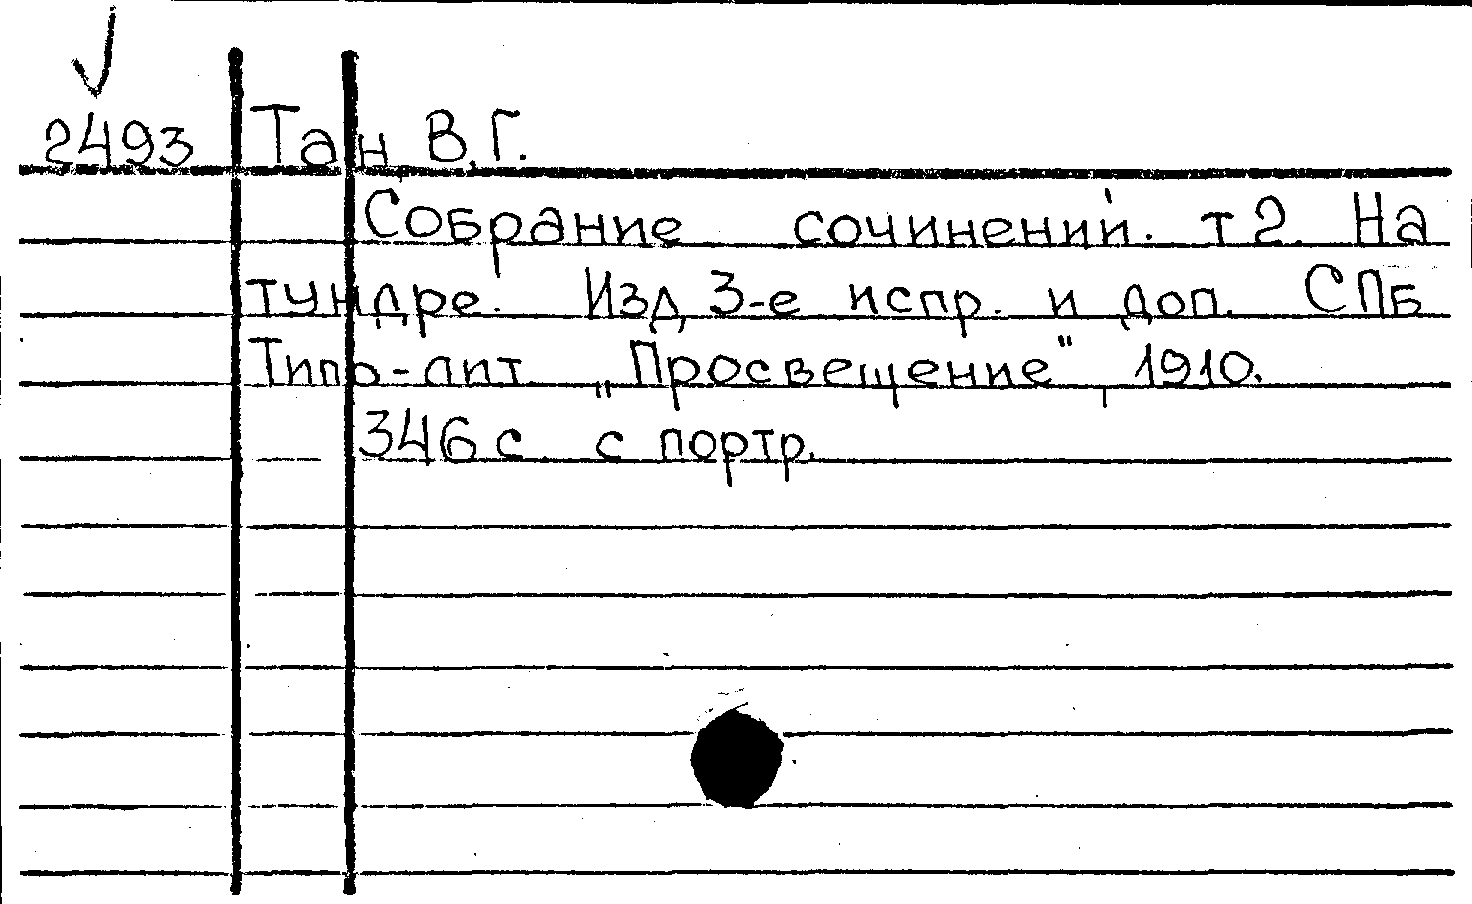 2493 Тан В.Г.
Собрание сочинений. т 2. На
тундре. Изд 3-е испр. и доп. СПб
Типо-лит. „Просвещение", 1910.
346 с. с портр.